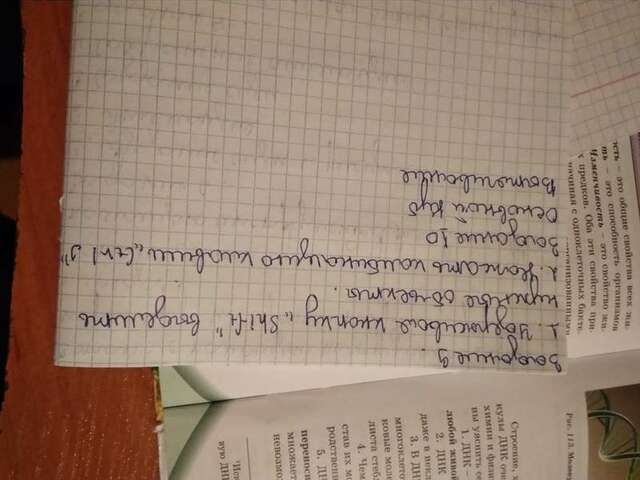 Задание 9.
1. Удерживая кнопку „Shift" выделить
нужные объекты.
2. Нажать комбинацию клавиш „Ctrl J"
Задание 10
Основной куб
Выталкивание
ость – это общие свойства всех жи
ть – это способность организмов
Изменчивость – это свойство жи
х предков. Оба эти свойства при
начиная с одноклеточных бакте
Рис. 113.
Строение, х
кулы ДНК очен
химии и физик
ны уяснить се
1. ДНК –
любой живой
2. ДНК
даже в некл
3. В ДН
многоклето
ковые моле
листа стебл
4. Чем
став их мо
родственн
5. ДН
переносч
множает
невозмо
"Ис
вую ДН